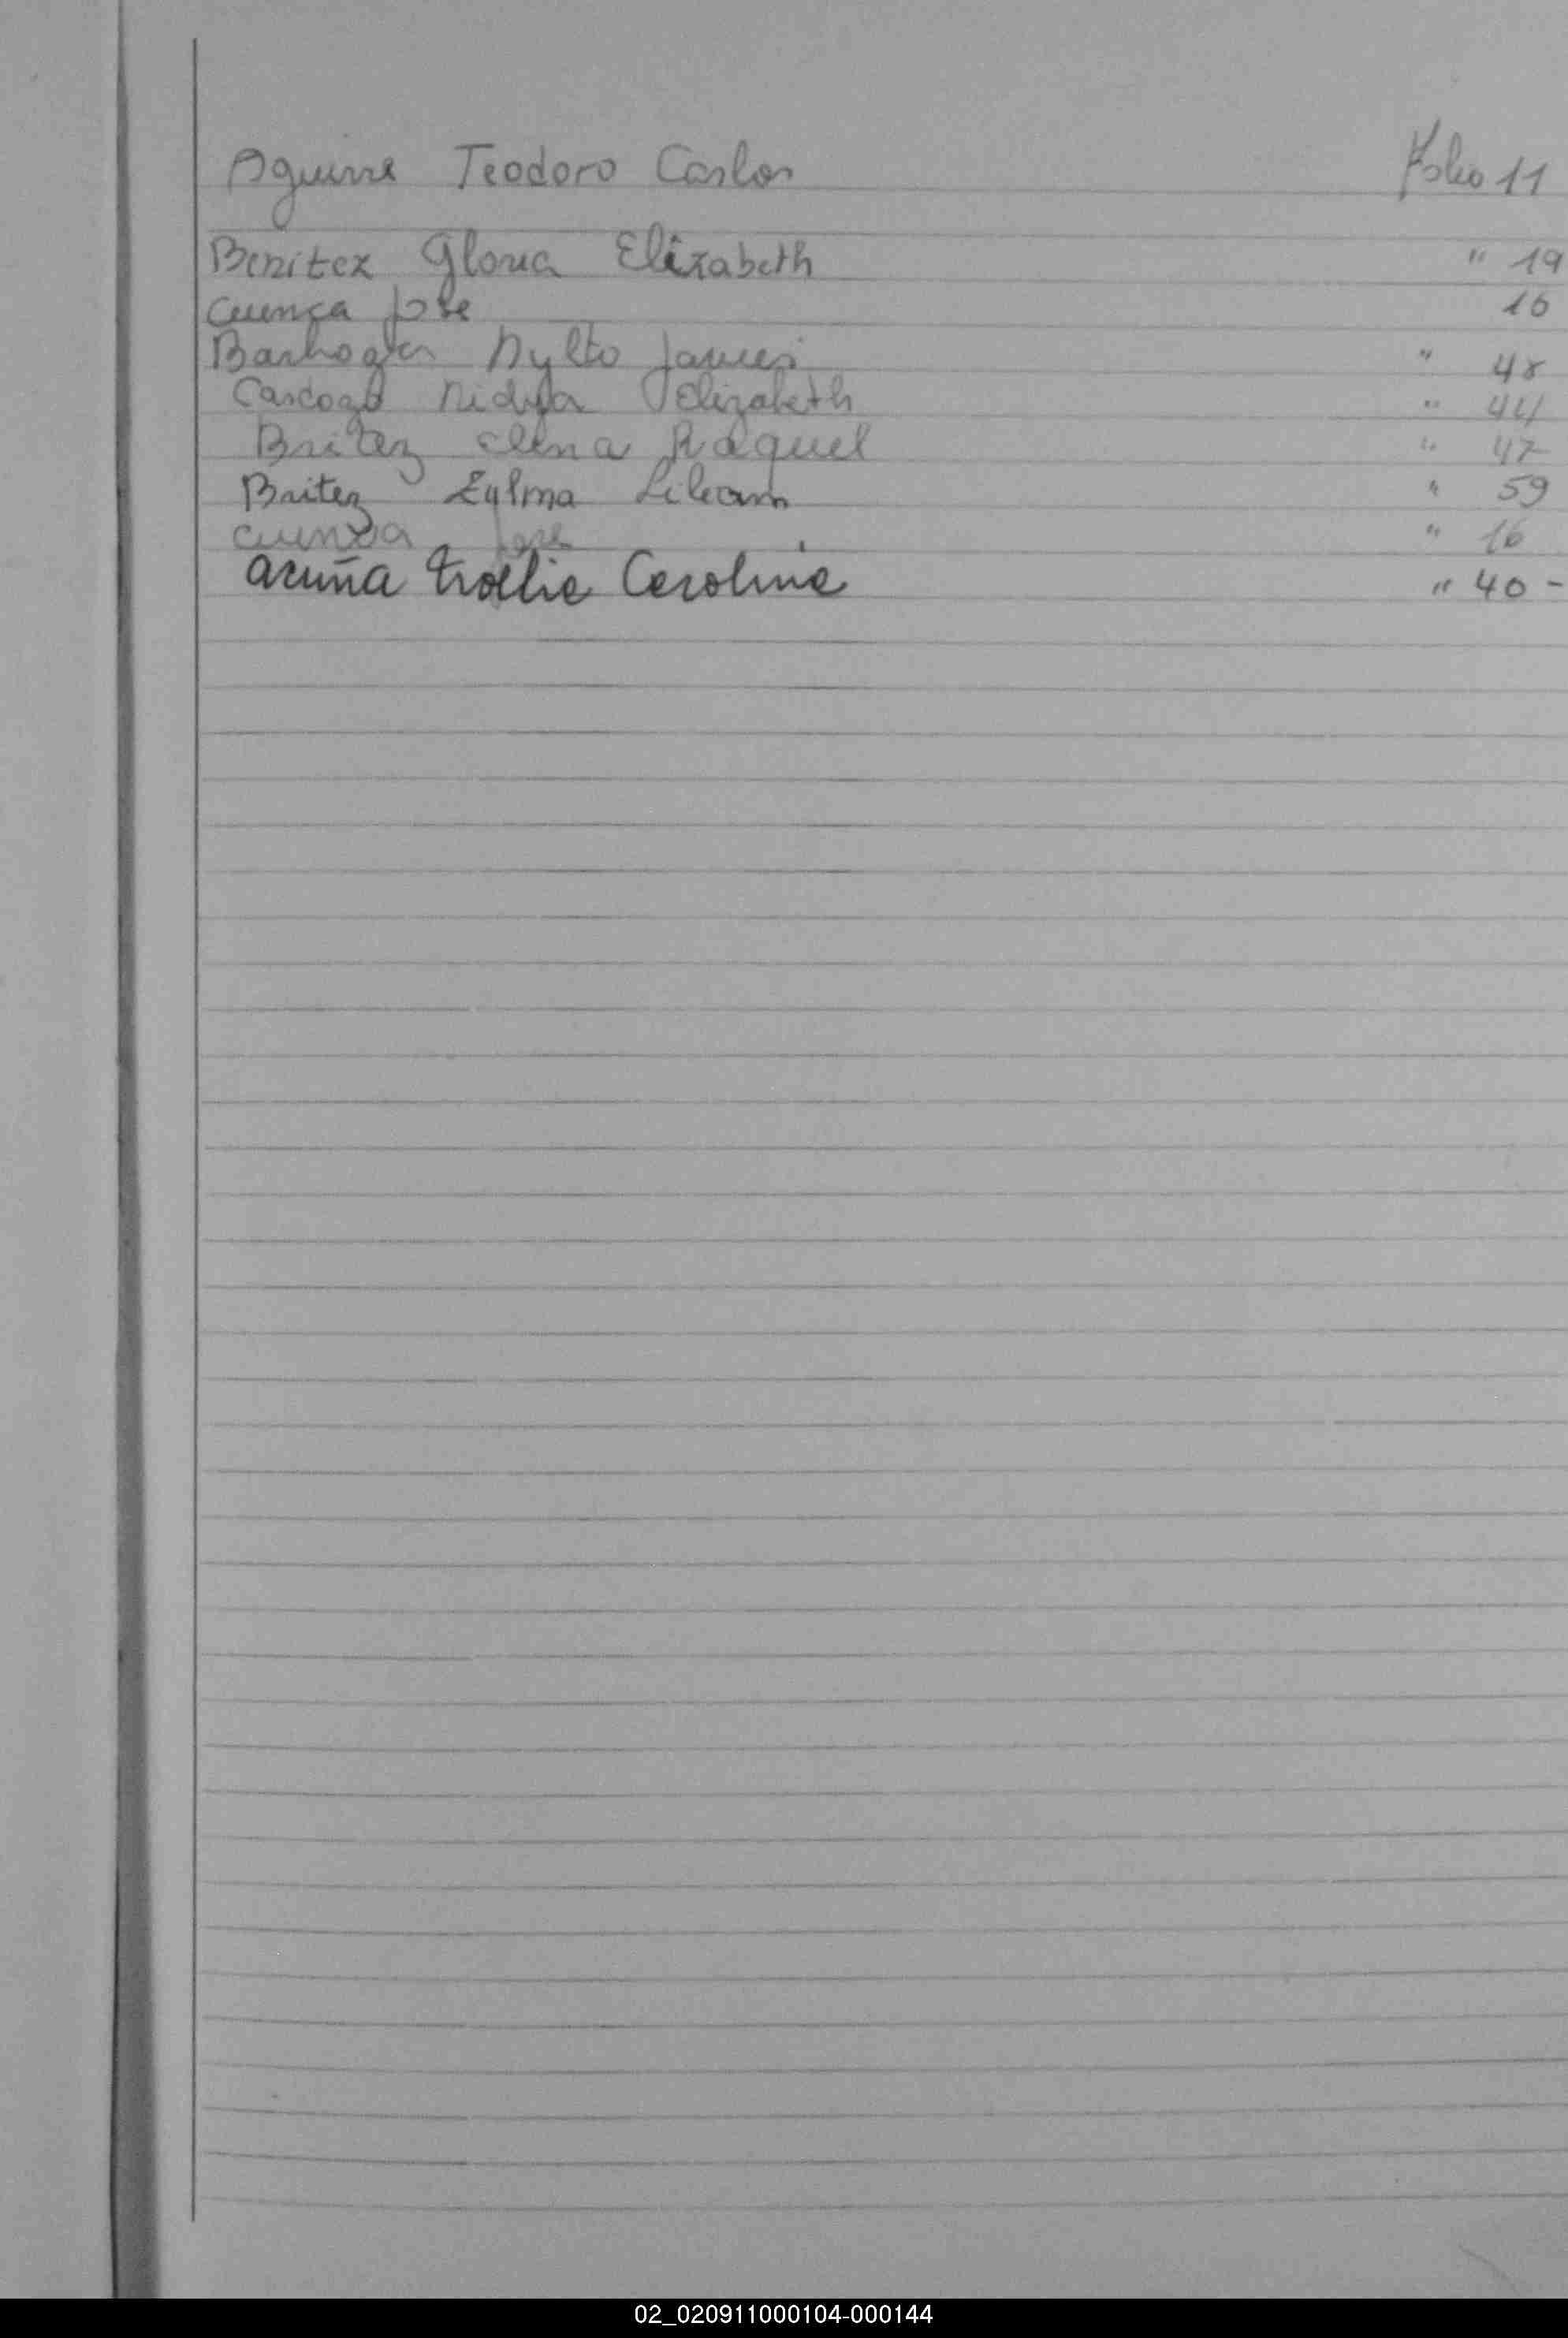 Aguirre Teodoro Carlos Folio 11
Benitez Gloria Elizabeth " 19
Cuenca Jose 16
Dylto Javier " 48
Cardozo Nidia Elizabeth " 44
Britez Elena Raquel " 47
Britez Zulma Liliam " 59
Cuenca Jose " 16
Acuña Carolina " 40 -
02_020911000104-000144